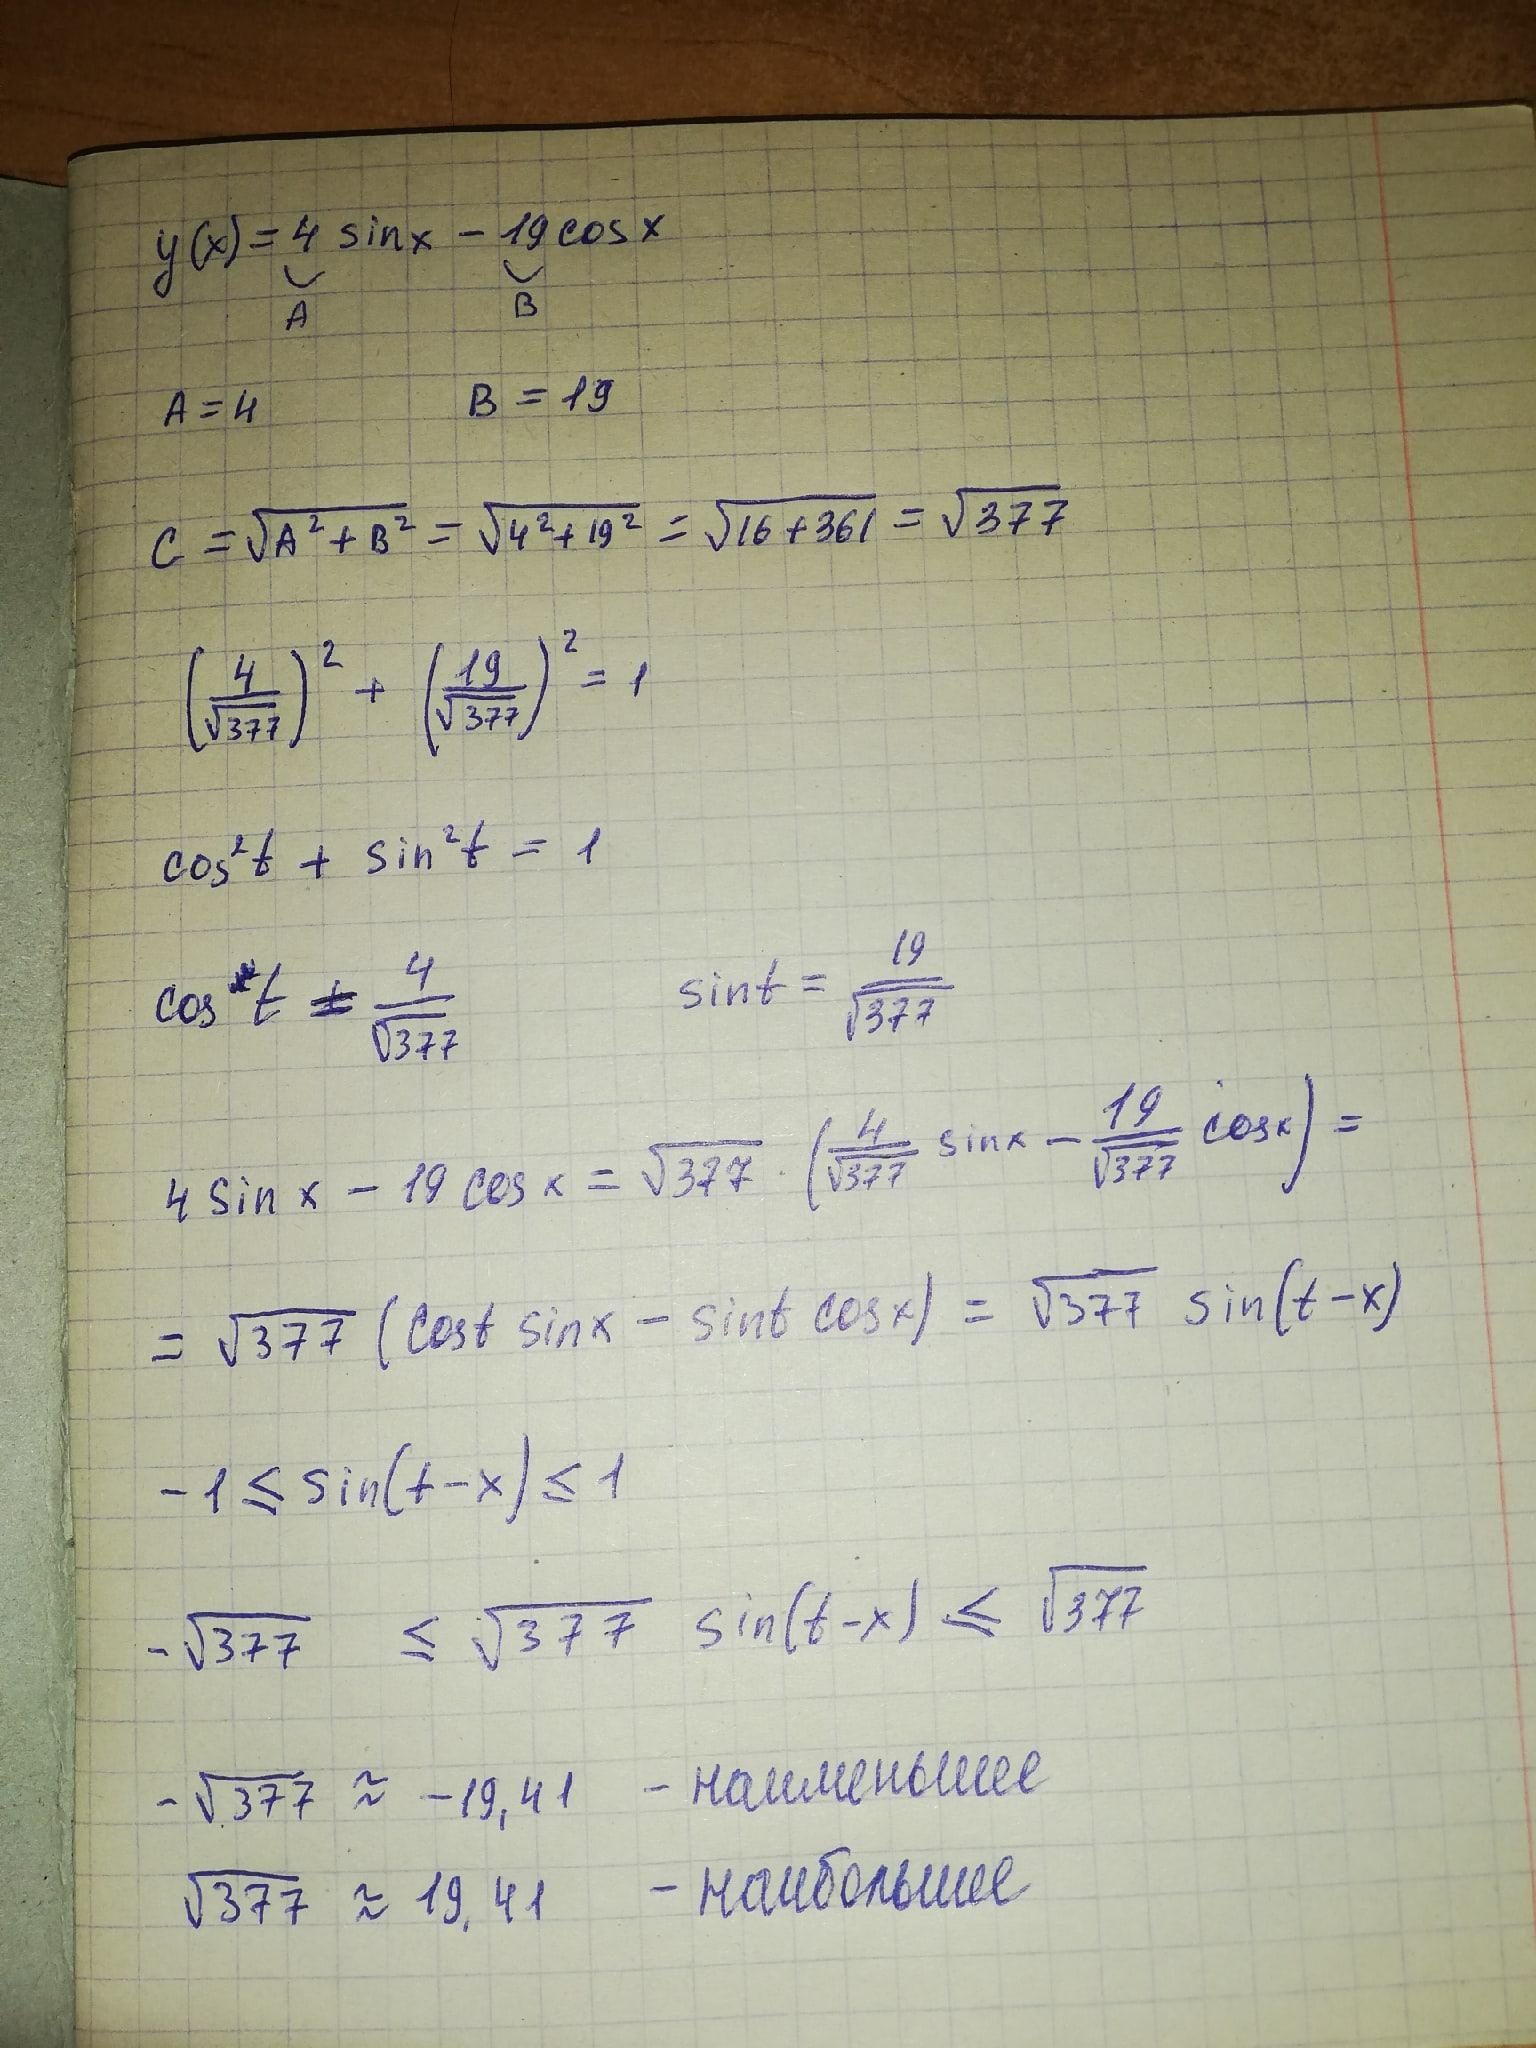 y(x) = 4 sinx - 19 cosx
A B
A = 4 B = 19
C = √(A² + B²) = √(4² + 19²) = √(16 + 361) = √377
(4/√377)² + (19/√377)² = 1
cos²t + sin²t = 1
cos t = 4/√377 sint = 19/√377
4 sin x - 19 cos x = √377 · (4/√377 sinx - 19/√377 cosx) =
= √377 (cost sinx - sint cosx) = √377 sin(t-x)
-1 ≤ sin(t-x) ≤ 1
-√377 ≤ √377 sin(t-x) ≤ √377
-√377 ≈ -19,41 - наименьшее
√377 ≈ 19,41 - наибольшее